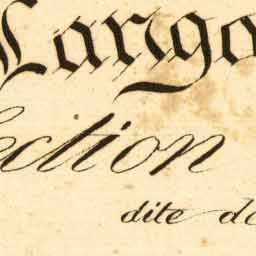 Lango
ection
dite do